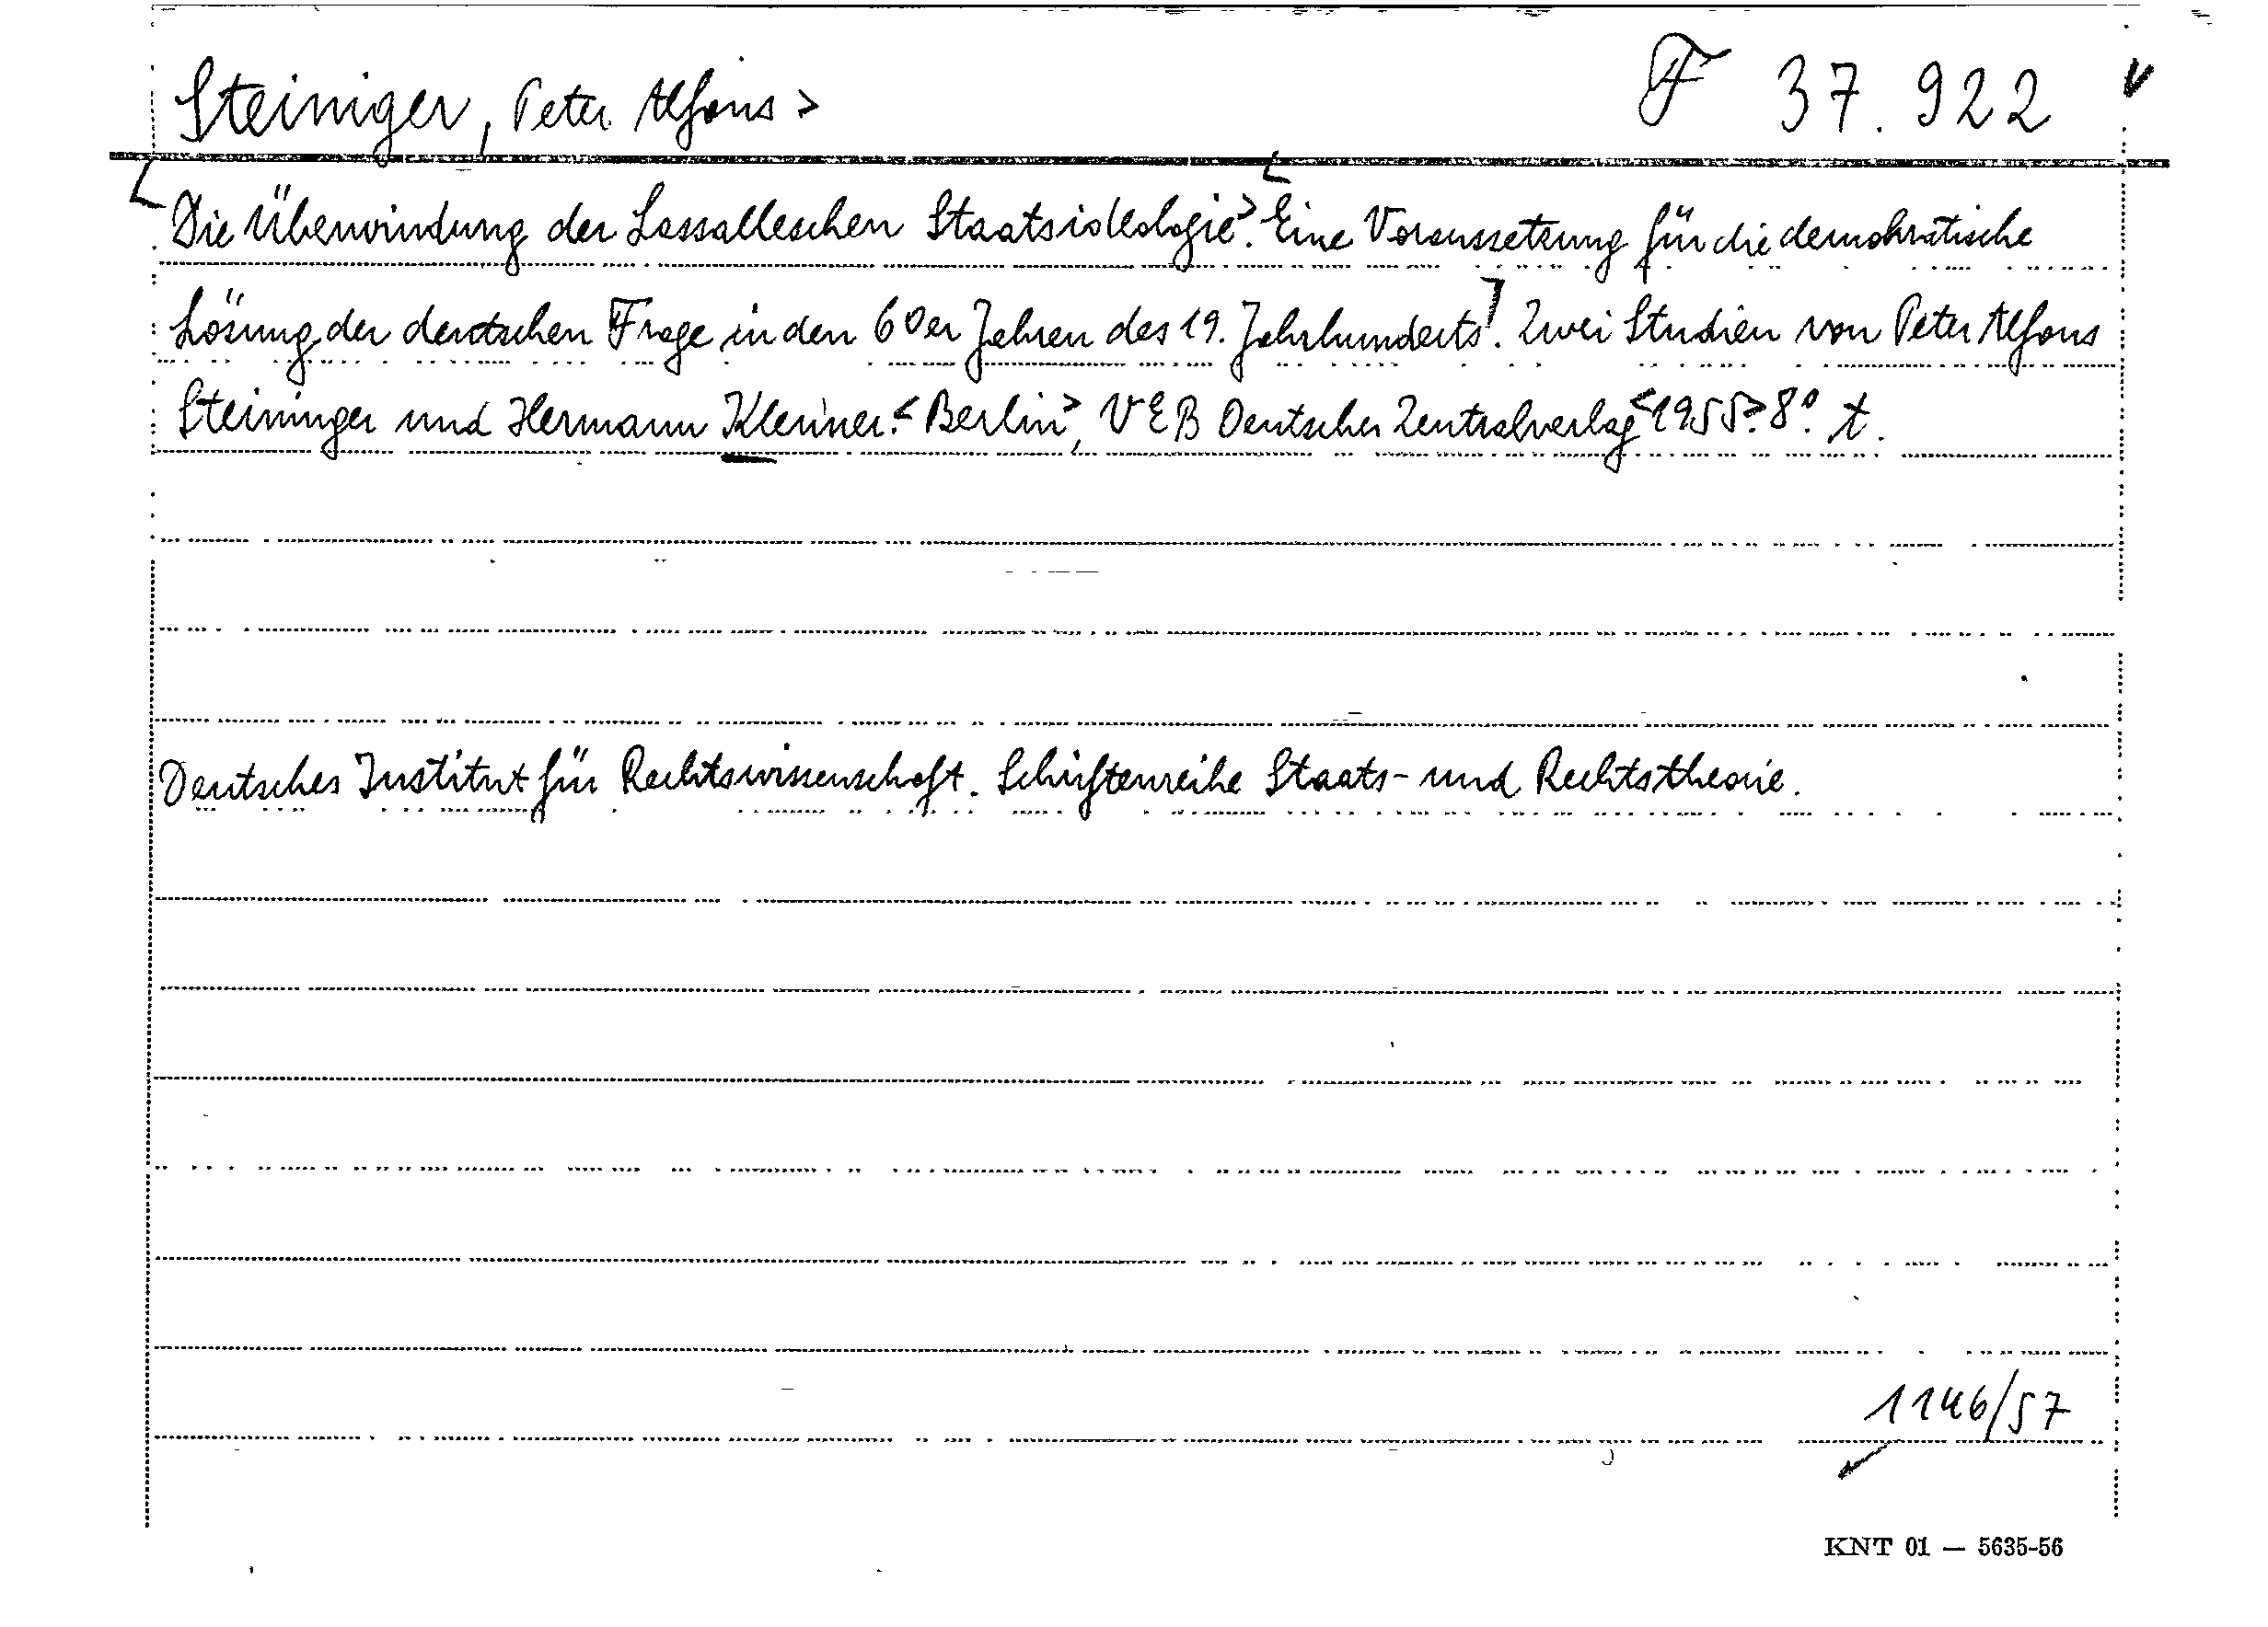 Steiniger, Peter Alfons > F 37.922 v
[Die Überwindung der Lassalleschen Staatsideologie>. <Eine Voraussetzung für die demokratische
Lösung der deutschen Frage in den 60er Jahren des 19. Jahrhunderts]. Zwei Studien von Peter Alfons
Steininger und Hermann Klenner. <Berlin>, VEB Deutscher Zentralverlag <1955>. 8°. t.
Deutsches Institut für Rechtswissenschaft. Schriftenreihe Staats- und Rechtstheorie.
1146/57
KNT 01 — 5635-56